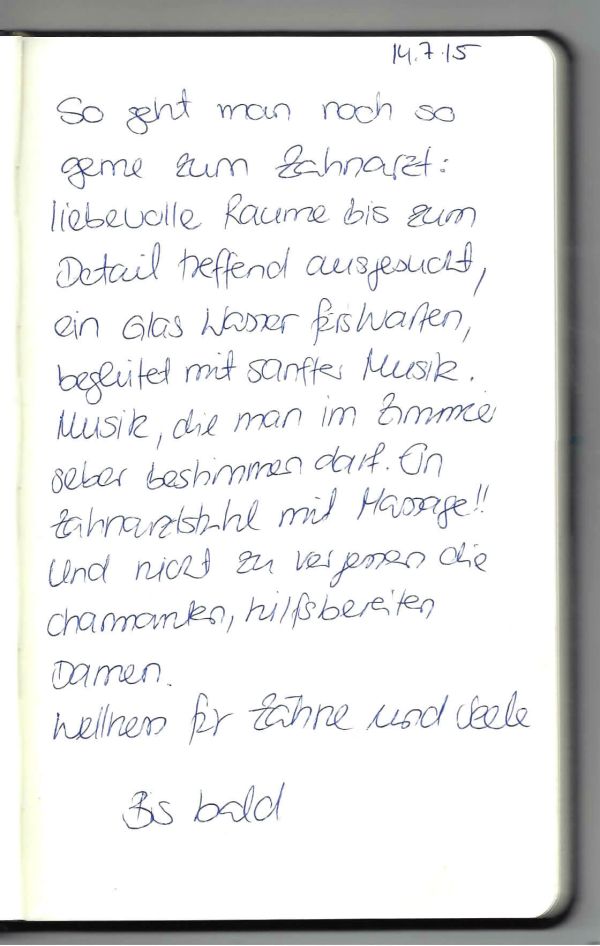 14.7.15
So geht man noch so
gerne zum Zahnarzt:
liebevolle Räume bis zum
Detail treffend ausgesucht,
ein Glas Wasser fürs Warten,
begleitet mit sanfter Musik.
Musik, die man im Zimmer
selber bestimmen darf. Ein
Zahnarztstuhl mit Massage!!
Und nicht zu vergessen die
charmanten, hilfsbereiten
Damen.
Wellness für Zähne und Seele
Bis bald